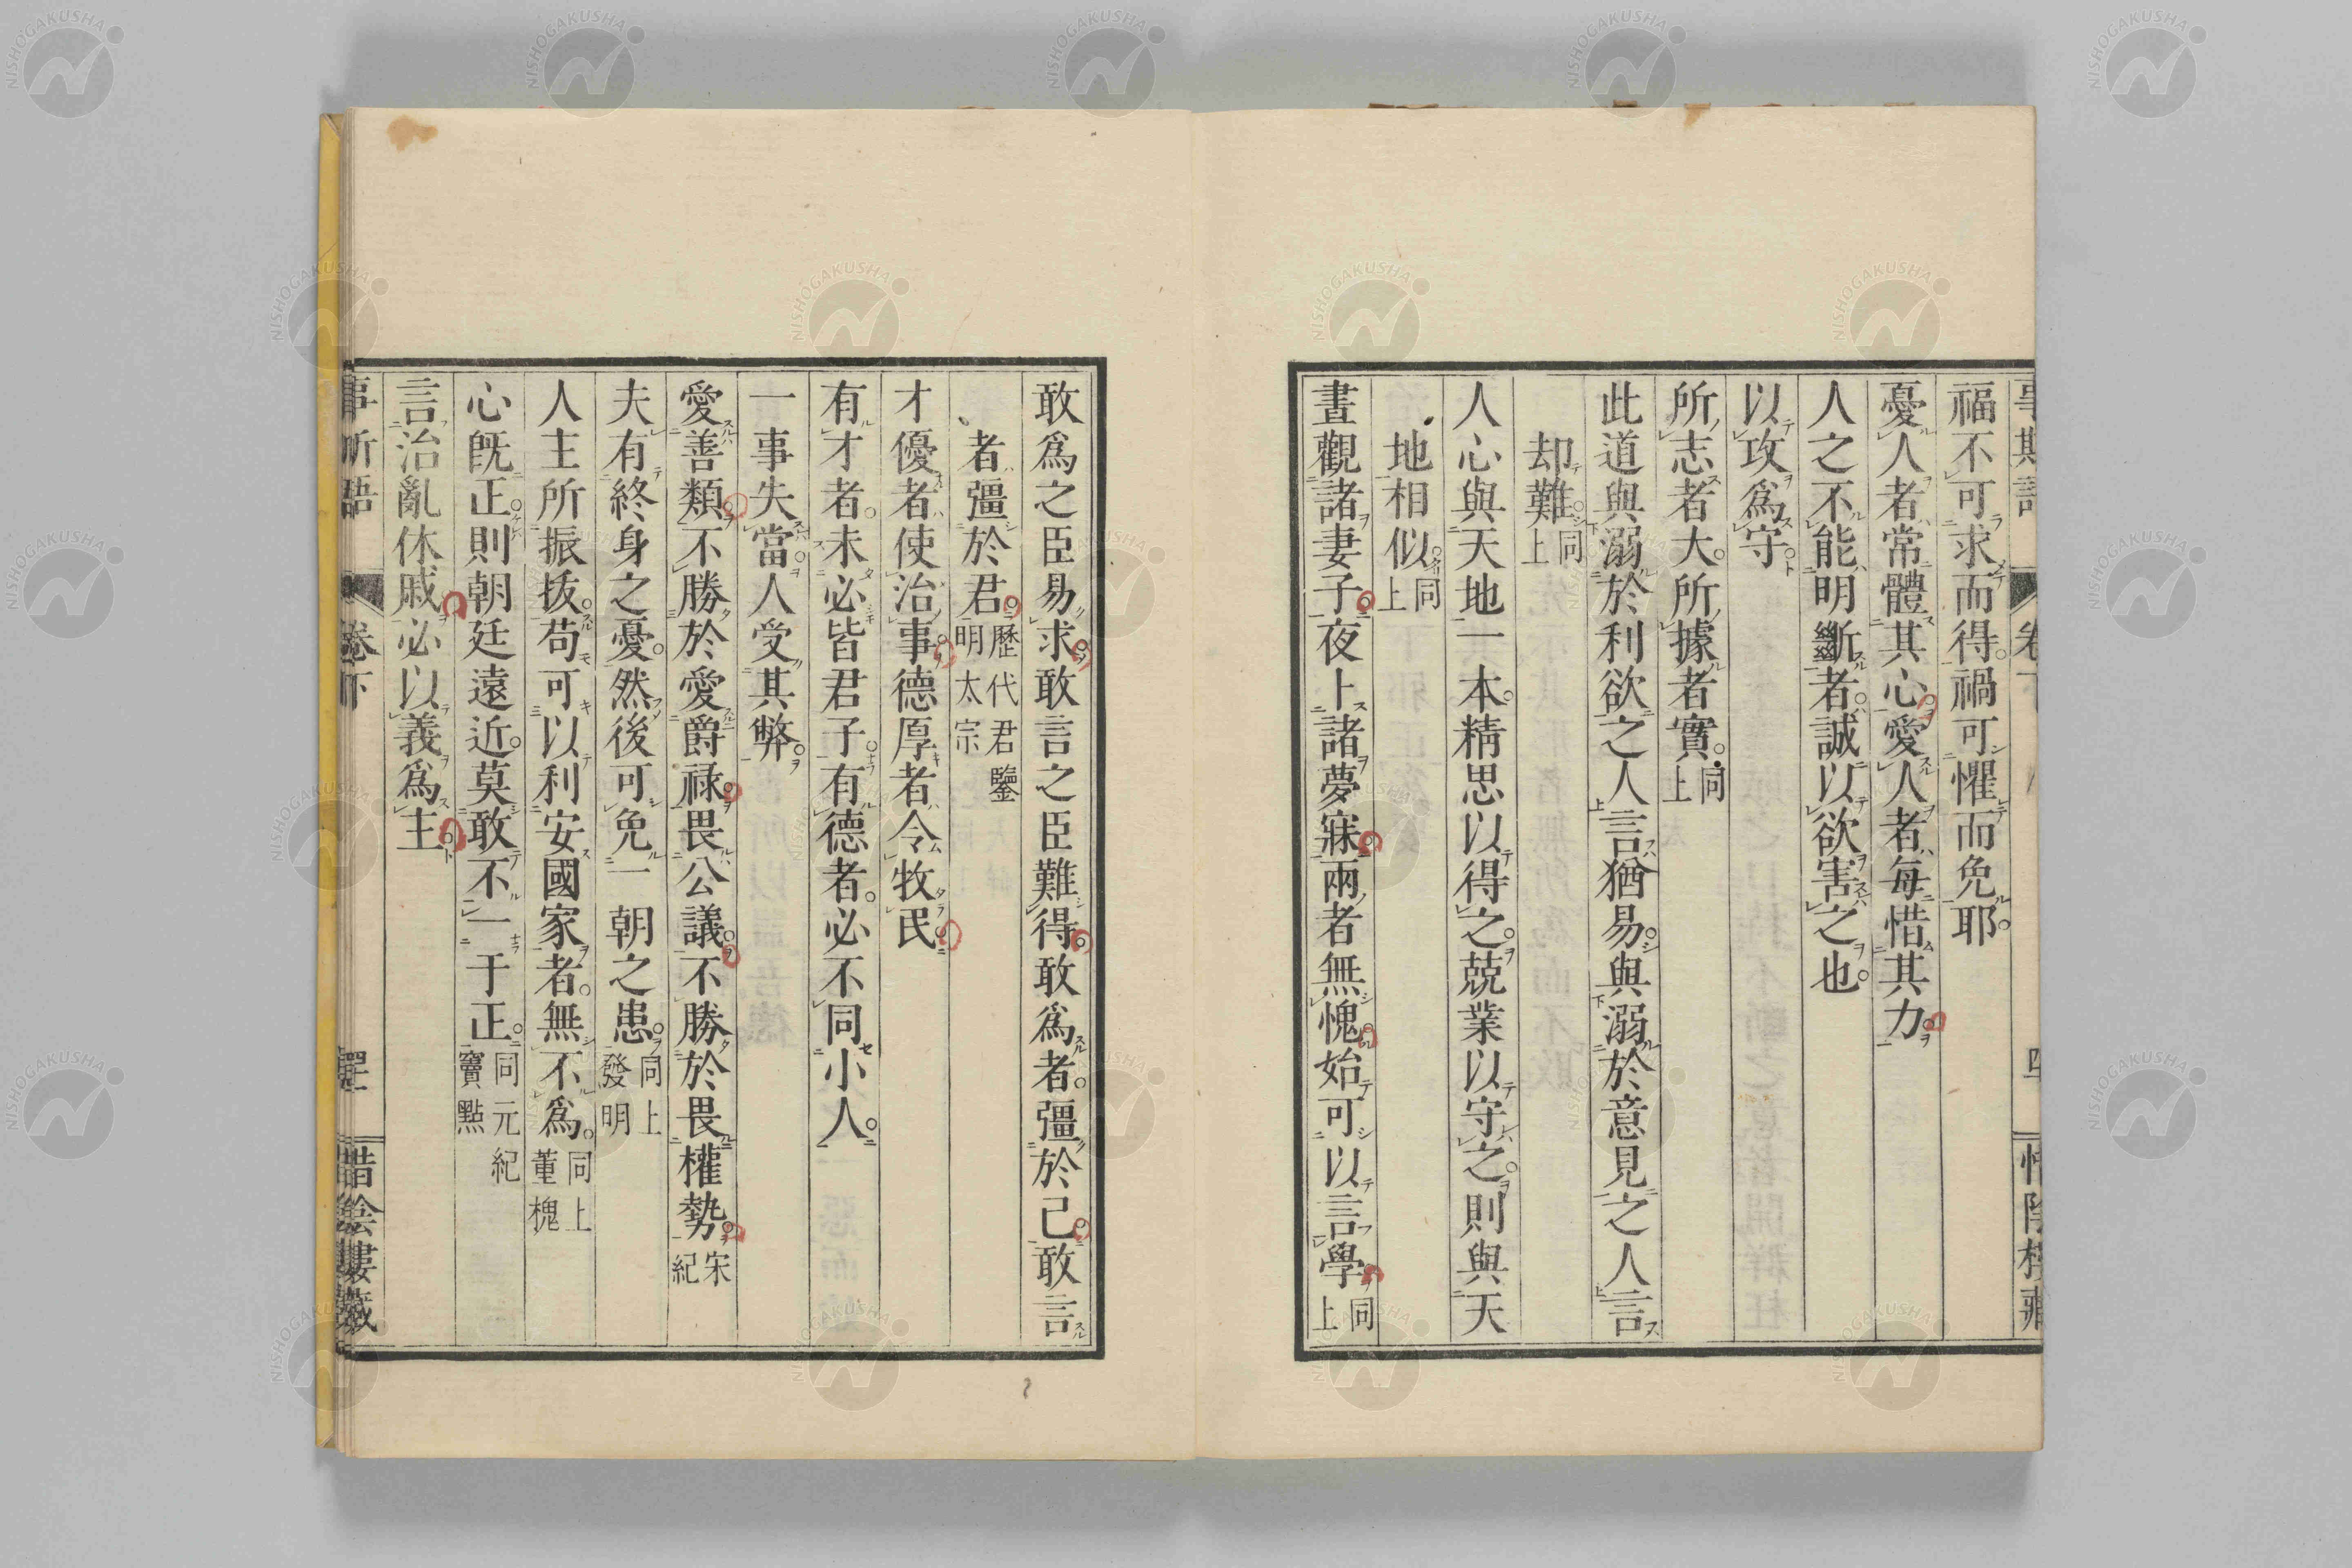 福不可求而得禍可懼而免耶
憂人者常體其心愛人者每惜其力
人之不能明斷者誠以欲害之也
以攻爲守
所志者大所據者實同上
此道與溺於利欲之人言猶易與溺於意見之人言
却難同上
人心與天地一本精思以得之兢業以守之則與天
地相似同上
晝觀諸妻子夜卜諸夢寐兩者無愧始可以言學同上
敢爲之臣易求敢言之臣難得敢爲者彊於己敢言
者彊於君歷代君鑒明太宗
才優者使治事德厚者令牧民
有才者未必皆君子有德者必不同小人
一事失當人受其弊
愛善類不勝於愛爵祿畏公議不勝於畏權勢宋紀
夫有終身之憂然後可免一朝之患同上發明
人主所振拔苟可以利安國家者無不爲同上董槐
心既正則朝廷遠近莫敢不一于正同元紀竇黙
言治亂休戚必以義爲主
NISHOGAKUSHA